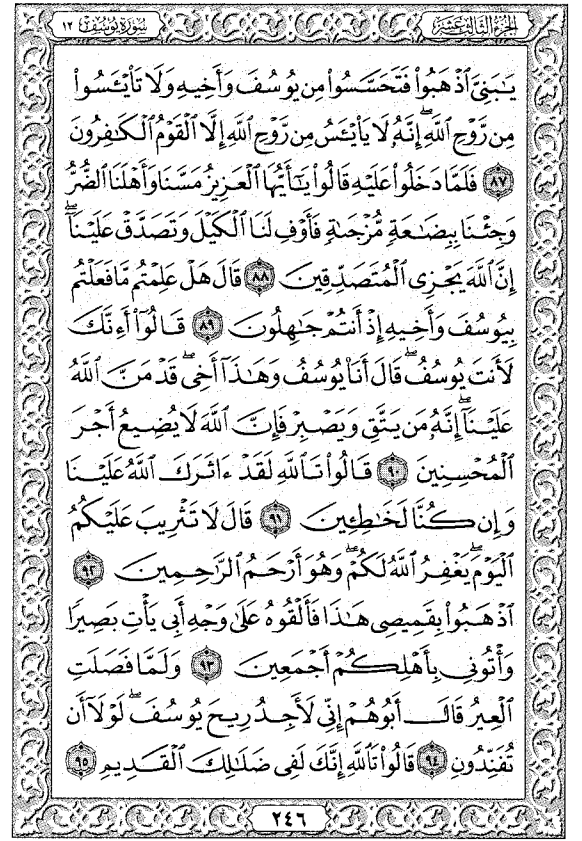 الجزء الثالث عشر
سورة يوسف ١٢
يَٰبَنِيَّ ٱذْهَبُوا۟ فَتَحَسَّسُوا۟ مِن يُوسُفَ وَأَخِيهِ وَلَا تَا۟يْـَٔسُوا۟
مِن رَّوْحِ ٱللَّهِ ۖ إِنَّهُۥ لَا يَا۟يْـَٔسُ مِن رَّوْحِ ٱللَّهِ إِلَّا ٱلْقَوْمُ ٱلْكَٰفِرُونَ
٨٧ فَلَمَّا دَخَلُوا۟ عَلَيْهِ قَالُوا۟ يَٰٓأَيُّهَا ٱلْعَزِيزُ مَسَّنَا وَأَهْلَنَا ٱلضُّرُّ
وَجِئْنَا بِبِضَٰعَةٍ مُّزْجَىٰةٍ فَأَوْفِ لَنَا ٱلْكَيْلَ وَتَصَدَّقْ عَلَيْنَآ ۖ
إِنَّ ٱللَّهَ يَجْزِى ٱلْمُتَصَدِّقِينَ ٨٨ قَالَ هَلْ عَلِمْتُم مَّا فَعَلْتُم
بِيُوسُفَ وَأَخِيهِ إِذْ أَنتُمْ جَٰهِلُونَ ٨٩ قَالُوٓا۟ أَءِنَّكَ
لَأَنتَ يُوسُفُ ۖ قَالَ أَنَا۠ يُوسُفُ وَهَٰذَآ أَخِى ۖ قَدْ مَنَّ ٱللَّهُ
عَلَيْنَآ ۖ إِنَّهُۥ مَن يَتَّقِ وَيَصْبِرْ فَإِنَّ ٱللَّهَ لَا يُضِيعُ أَجْرَ
ٱلْمُحْسِنِينَ ٩٠ قَالُوا۟ تَٱللَّهِ لَقَدْ ءَاثَرَكَ ٱللَّهُ عَلَيْنَا
وَإِن كُنَّا لَخَٰطِـِٔينَ ٩١ قَالَ لَا تَثْرِيبَ عَلَيْكُمُ
ٱلْيَوْمَ ۖ يَغْفِرُ ٱللَّهُ لَكُمْ ۖ وَهُوَ أَرْحَمُ ٱلرَّٰحِمِينَ ٩٢
ٱذْهَبُوا۟ بِقَمِيصِى هَٰذَا فَأَلْقُوهُ عَلَىٰ وَجْهِ أَبِى يَأْتِ بَصِيرًا
وَأْتُونِى بِأَهْلِكُمْ أَجْمَعِينَ ٩٣ وَلَمَّا فَصَلَتِ
ٱلْعِيرُ قَالَ أَبُوهُمْ إِنِّى لَأَجِدُ رِيحَ يُوسُفَ ۖ لَوْلَآ أَن
تُفَنِّدُونِ ٩٤ قَالُوا۟ تَٱللَّهِ إِنَّكَ لَفِى ضَلَٰلِكَ ٱلْقَدِيمِ ٩٥
٢٤٦